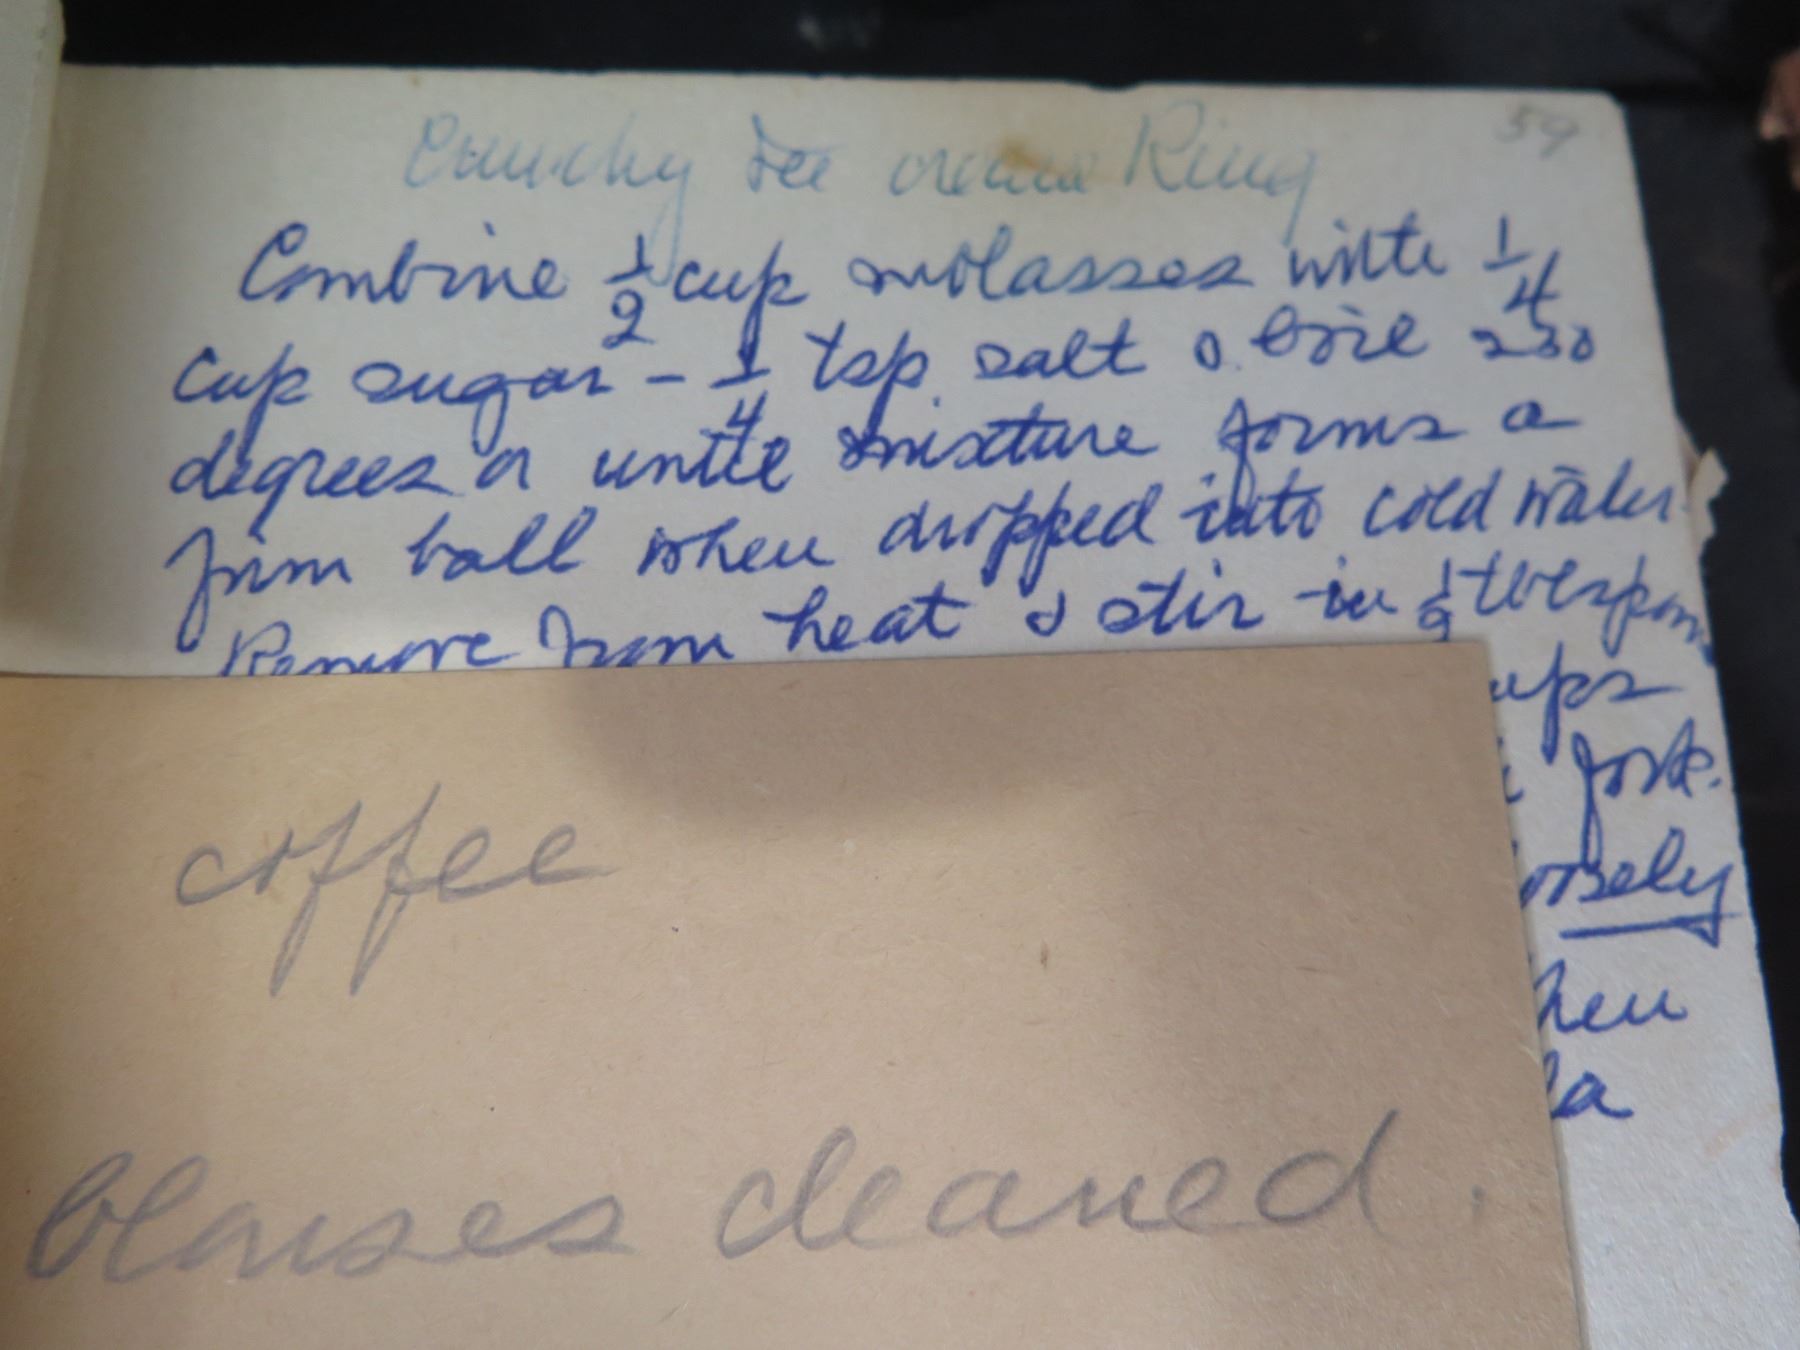 59
Crunchy Ice cream Ring
Combine 1/2 cup molasses with 1/4
cup sugar - 1/4 tsp salt & boil
degrees or until mixture forms a
firm ball when dropped into cold water
Remove from heat & stir in 1/2 tblespoon
ups
fork.
oosely
hen
la
coffee
blouses cleaned.